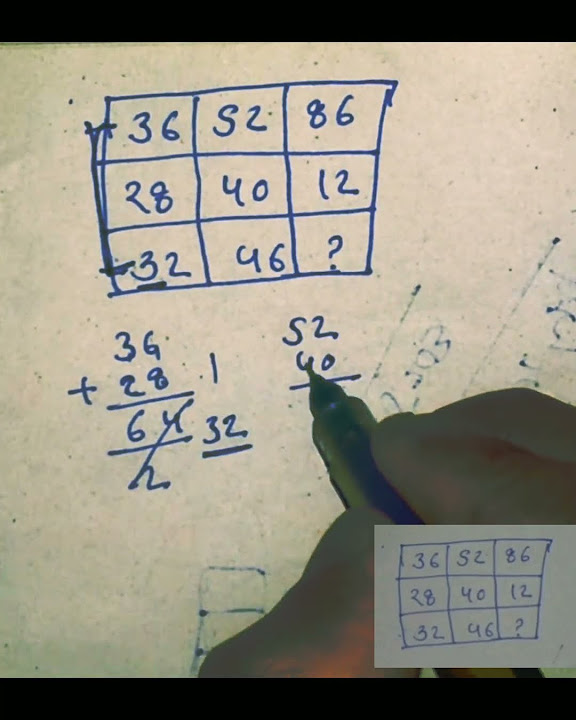 36 52 86
28 40 12
32 46 ?
36
+ 28
64
2
32
52
40
36 52 86
28 40 12
32 46 ?